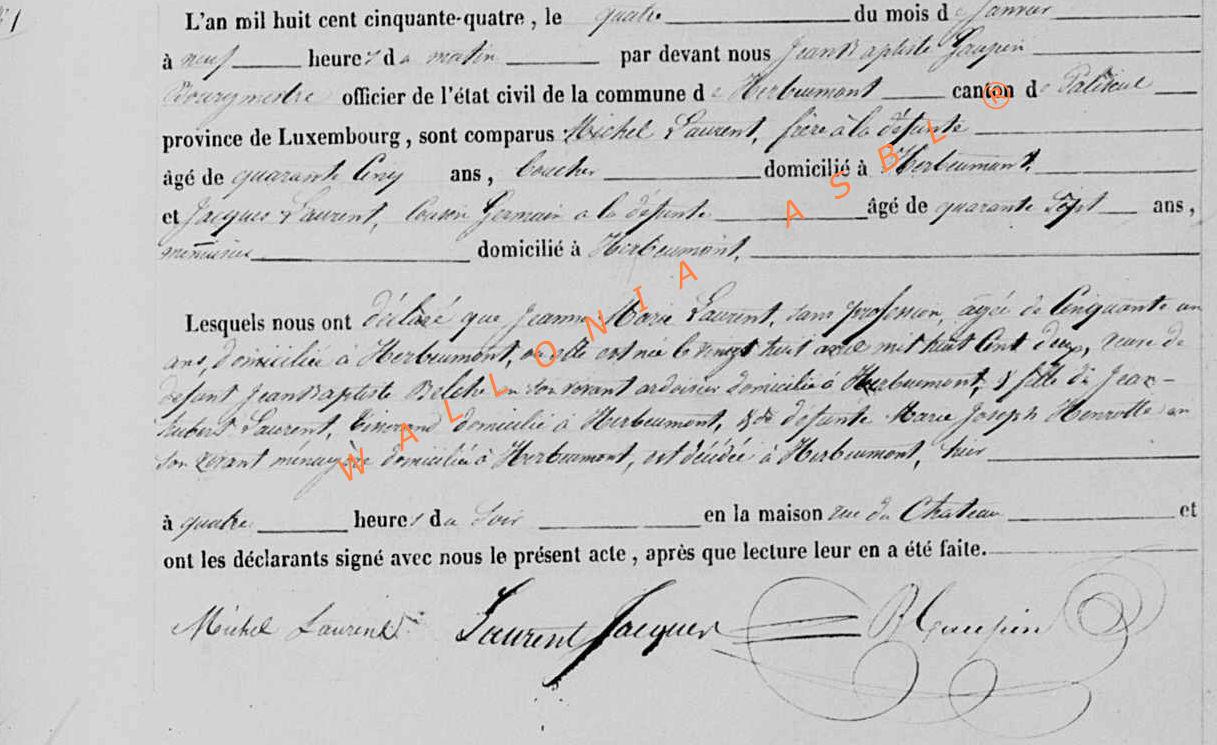 L'an mil huit cent cinquante-quatre, le quatre du mois de Janvier
à neuf heures du matin par devant nous Jean Baptiste Gaupin
Bourgmestre officier de l'état civil de la commune de Herbeumont canton de Paliseul
province de Luxembourg, sont comparus Michel Laurent, frère à la défunte
âgé de quarante Cinq ans, domicilié à Herbeumont,
et Jacques Laurent, Cousin Germain a la défunte âgé de quarante Sept ans,
menuisier domicilié à Herbeumont,
Lesquels nous ont déclaré que Jeanne Marie Laurent, sans profession, agée de Cinquante un
ans, domiciliée à Herbeumont, où elle est née le vingt huit mil huit Cent deux, veuve de
défunt Jean Baptiste en son vivant ardoisier domicilié à Herbeumont, & fille de Jean-
hubert Laurent, domicilié à Herbeumont, & de défunte Marie Joseph Henrotte en
son vivant ménagère domiciliée à Herbeumont, est décédée à Herbeumont, hier
à quatre heures du Soir en la maison rue du Chateau et
ont les déclarants signé avec nous le présent acte, après que lecture leur en a été faite.
Michel Laurent Laurent Jacques Gaupin
WALLONIA ASBL ®